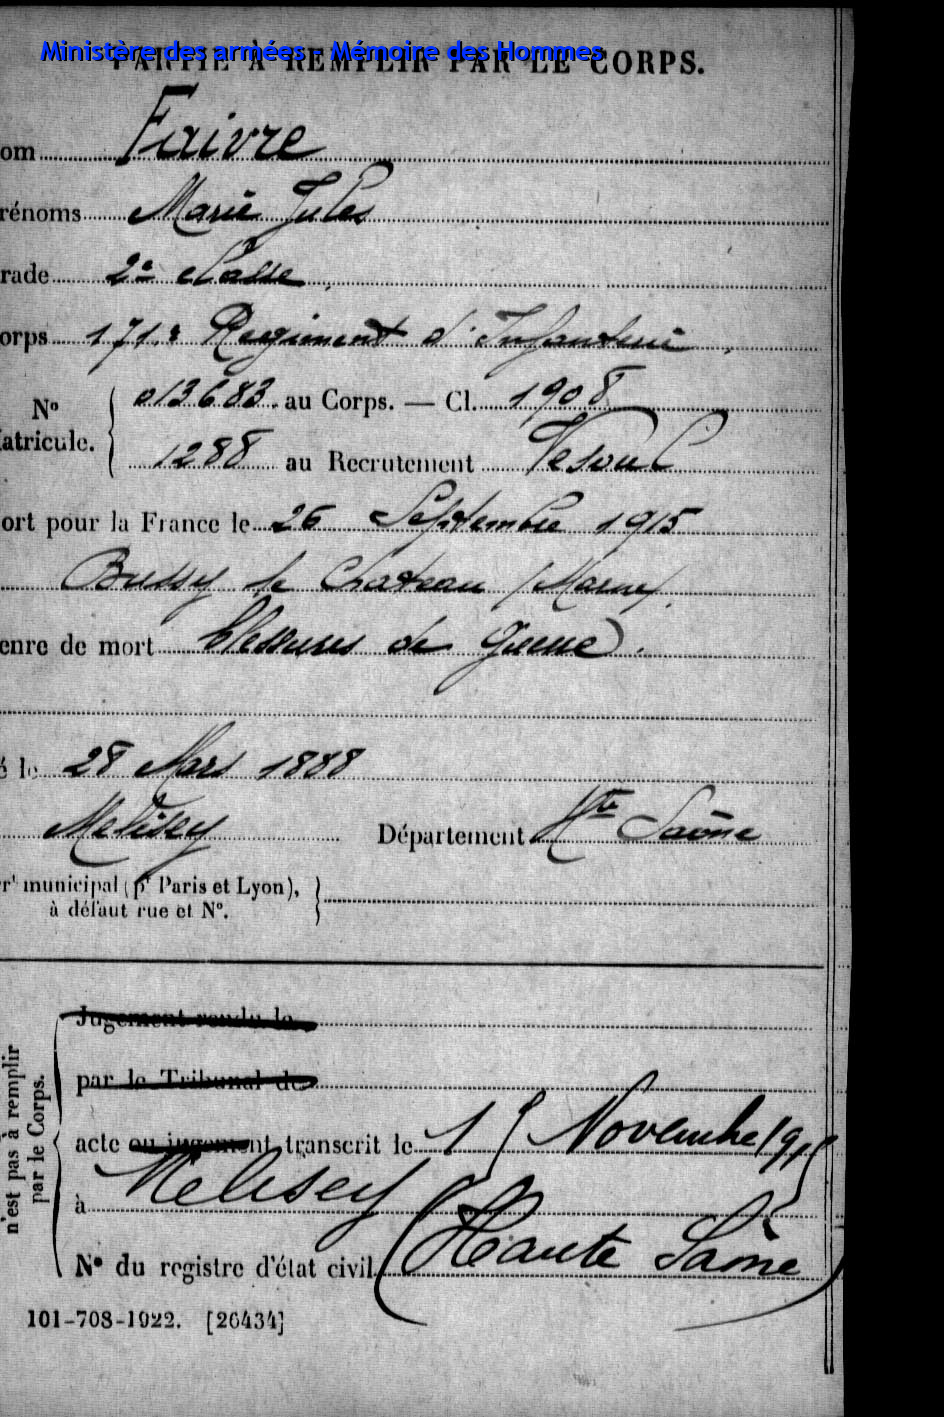 Ministère des armées - Mémoire des Hommes
PARTIE À REMPLIR PAR LE CORPS.
om Faivre
rénoms Marie Jules
rade 2e classe
orps 171e Régiment d'Infanterie
No atricule. 013683 au Corps. — Cl. 1908
1288 au Recrutement Vesoul
ort pour la France le 26 Septembre 1915
Bussy le Chateau (Marne)
enre de mort blessures de guerre.
é le 28 Mars 1888
Melisey Département Hte Saône
rt municipal (pr Paris et Lyon),
à défaut rue et No.
n'est pas à remplir
par le Corps.
Jugement rendu le
par le Tribunal de
acte ou jugement transcrit le 15 Novembre 1915
à Melisey
No du registre d'état civil (Haute Saône)
101-708-1922. [26434]